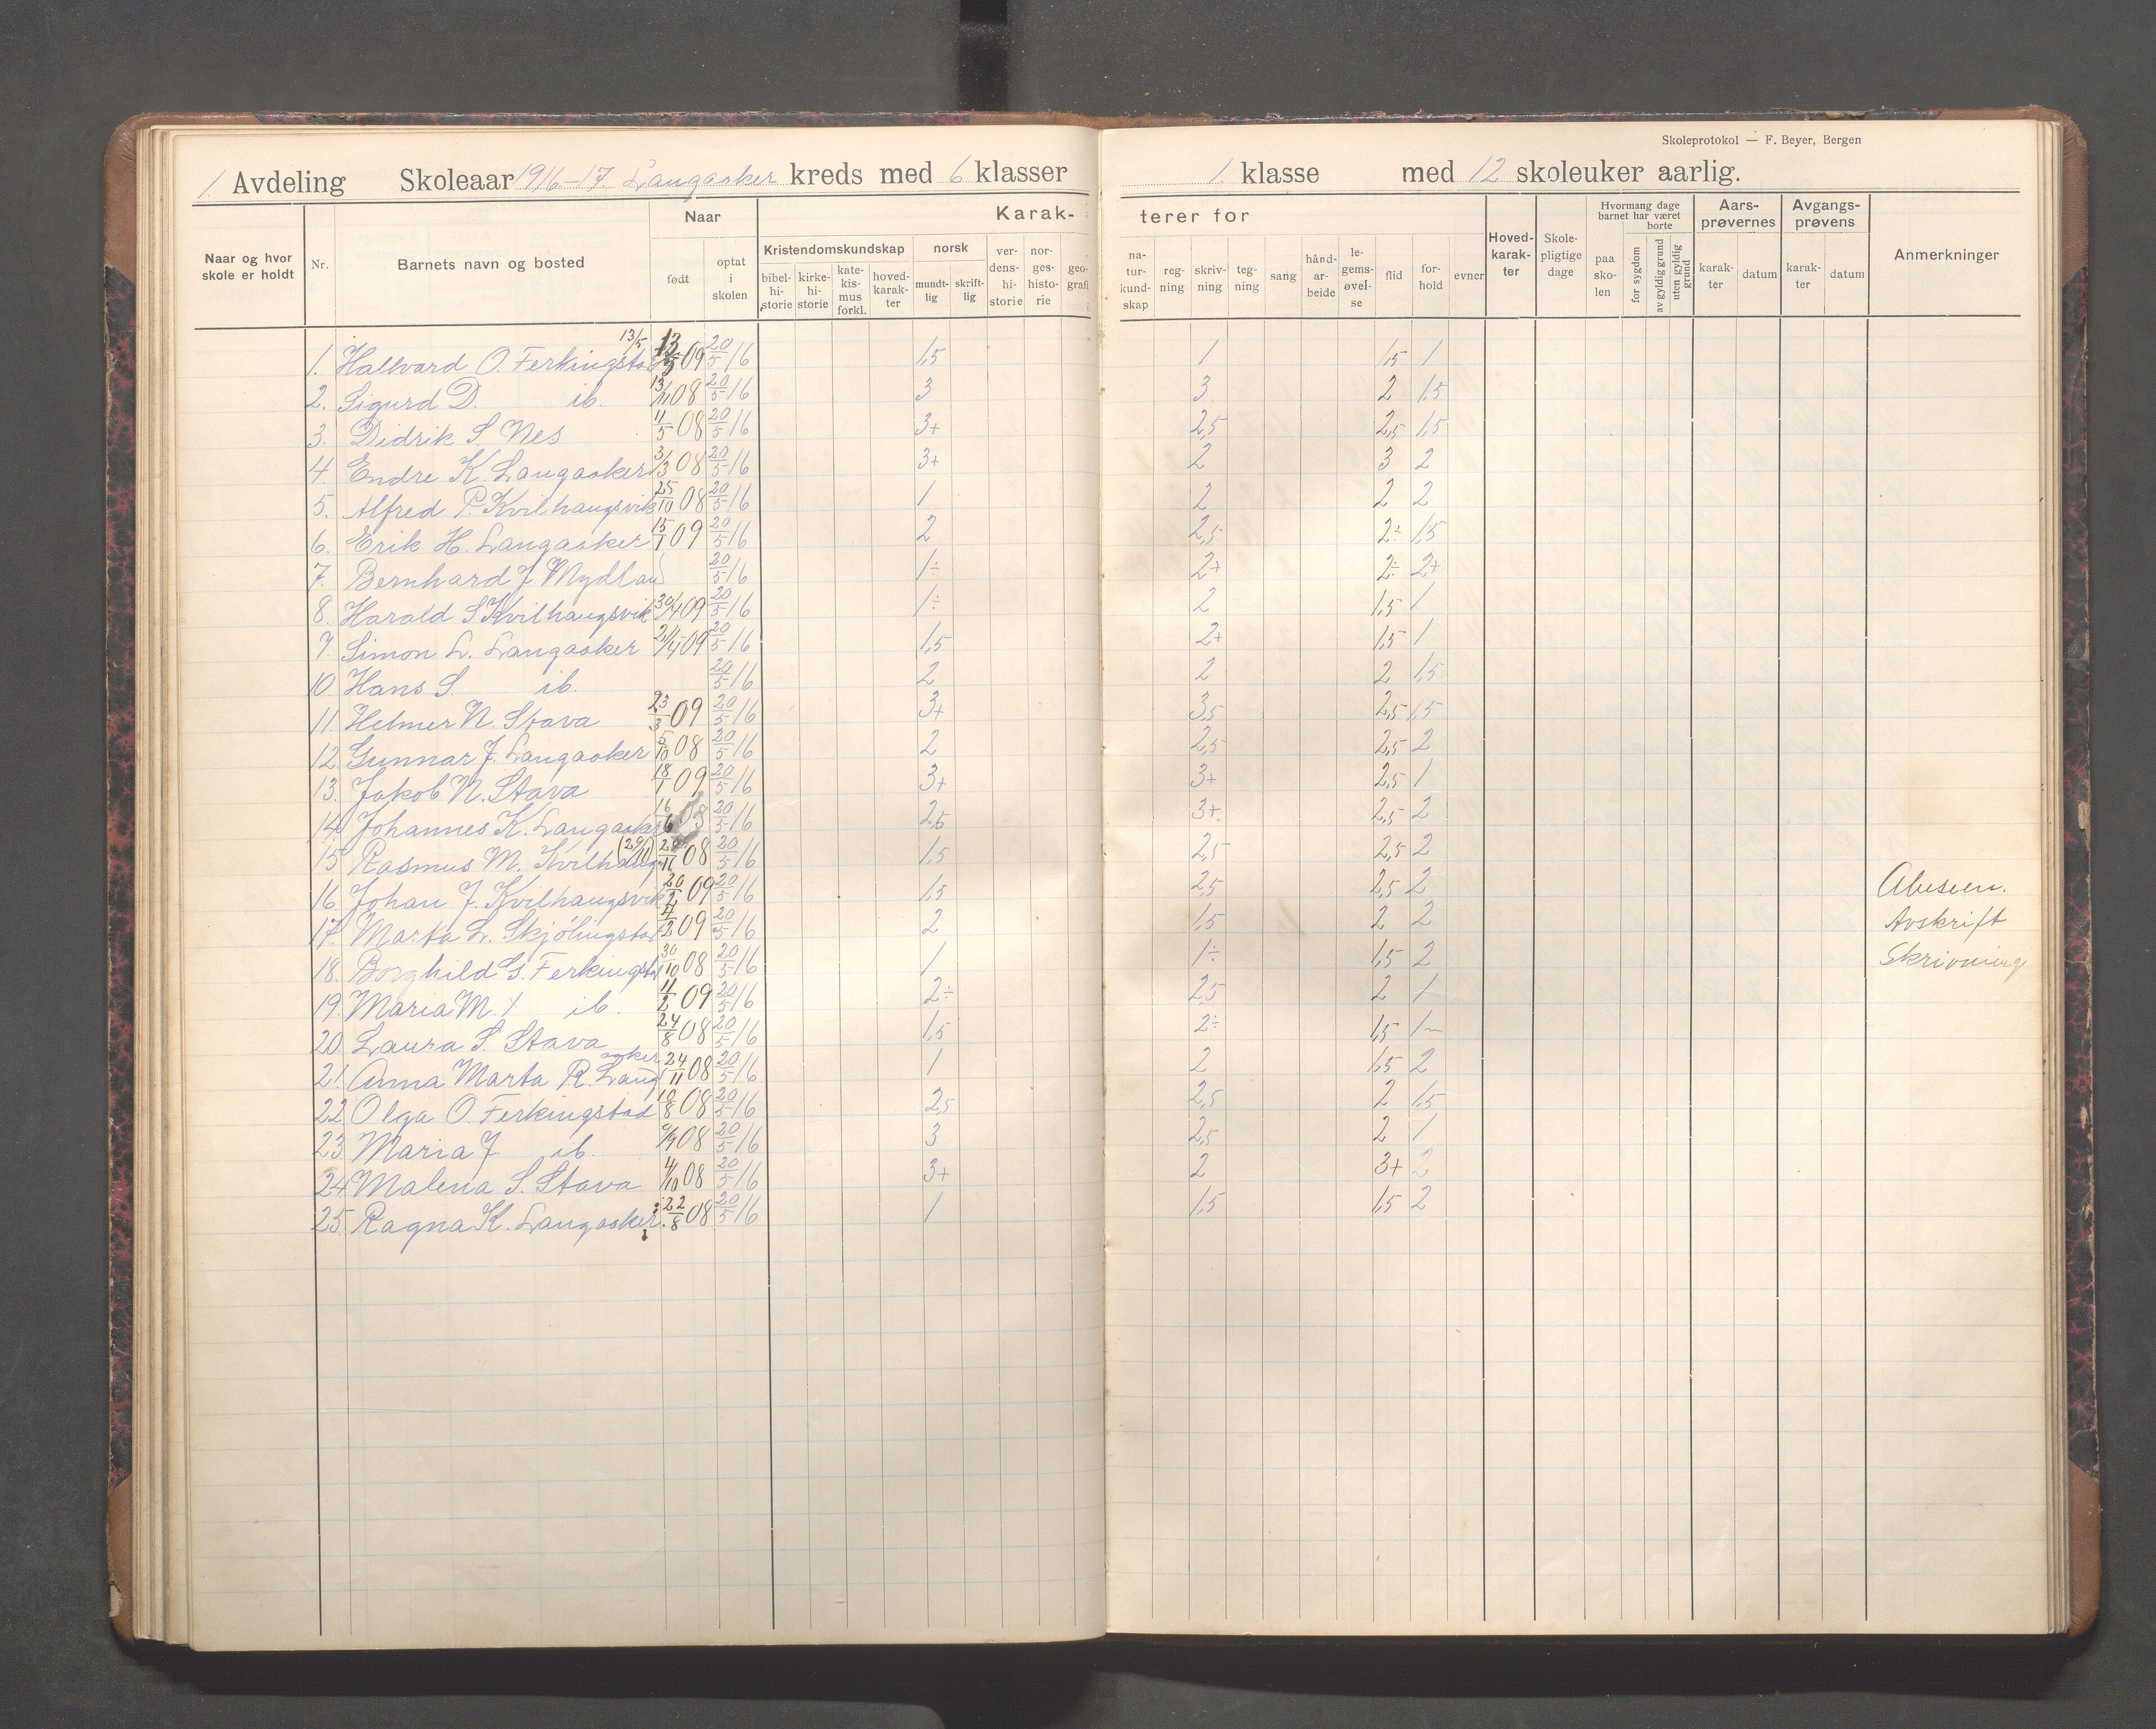 Skoleprotokol — F. Beyer, Bergen
1. Avdeling Skoleaar 1916-17. Langaaker kreds med 6 klasser 1. klasse med 12 skoleuker aarlig.
Naar og hvor skole er holdt Nr. Barnets navn og bosted Naar født optat i skolen Karakterer for
Kristendomskundskap bibelhistorie kirkehistorie katekismus forkl. hovedkarakter norsk mundtlig skriftlig verdenshistorie norgeshistorie geografi
naturkundskap regning skrivning tegning sang håndarbeide legemsøvelse flid forhold evner Hovedkarakter Skolepligtige dage
Hvormang dage barnet har været borte paa skolen for sygdom av gyldig grund uten gyldig grund Aarsprøvernes karakter datum Avgangsprøvens karakter datum Anmerkninger
13/5
1. Halvard O. Ferkingstad 09 20/5 16 1,5 1 1,5 1
2. Sigurd D. ib. 13/11 08 20/5 16 3 3 2 1,5
3. Didrik S. Nes 11/5 08 20/5 16 3+ 2,5 2,5 1,5
4. Endre K. Langaaker 3/3 08 20/5 16 3+ 2 3 2
5. Alfred P. Kvilhaugsvik 25/10 08 20/5 16 1 2 2 2
6. Erik H. Langaaker 15/1 09 20/5 16 2 2,5 2÷ 1,5
7. Bernhard J. Mydland 20/5 16 1÷ 2+ 2÷ 2+
8. Harald S Kvilhaugsvik 30/4 09 20/5 16 1÷ 2 1,5 1
7. Simon L. Langaaker 09 20/5 16 1,5 2+ 1,5 1
10. Hans S. ib. 20/5 16 2 2 2 1,5
11. Helmer N. Stava 23/3 09 20/5 16 3+ 3,5 2,5 1,5
12. Gunnar J. Langaaker 5/10 08 20/5 16 2 2,5 2,5 2
13. Jakob N. Stava 18/1 09 20/5 16 3+ 3+ 2,5 1
14. Johannes K. Langaaker 16/6 08 20/5 16 2,5 3+ 2,5 2
15. Rasmus M. Kvilhaug (29/11) 08 20/5 16 1,5 2,5 2,5 2
16. Johan J. Kvilhaugsvik 09 20/5 16 1,5 2,5 2,5 2 Abuseen.
17. Marta L. Skjölingstad 4/2 09 20/5 16 2 1,5 2 2 Avskrift
18. Borghild G. Ferkingstd 30/10 08 20/5 16 1 1÷ 1,5 2 Skrivning
19. Maria M. ib. 11/2 09 20/5 16 2÷ 2,5 2 1
20. Laura S. Stava 24/8 08 20/5 16 1,5 2÷ 1,5 1
21. Anna Marta R. Langaaker 24/11 08 20/5 16 1 2 1,5 2
22. Olga O. Ferkingstad 10/8 08 20/5 16 2,5 2,5 2 1,5
23. Maria J. ib. 08 20/5 16 3 2,5 2 1
24 Malena S. Stava 4/10 08 20/5 16 3+ 2 3+ 2
25. Ragna K. Langaaker 22/8 08 20/5 16 1 1,5 1,5 2